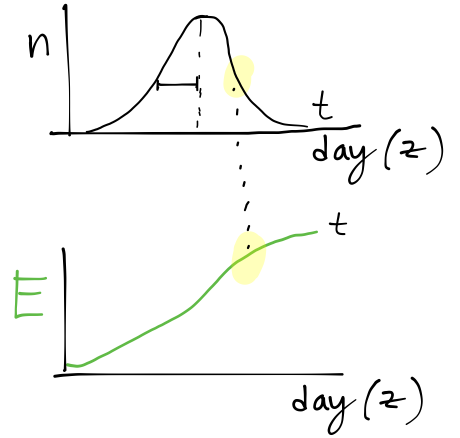 n
t
day (z)
t
E
day (z)